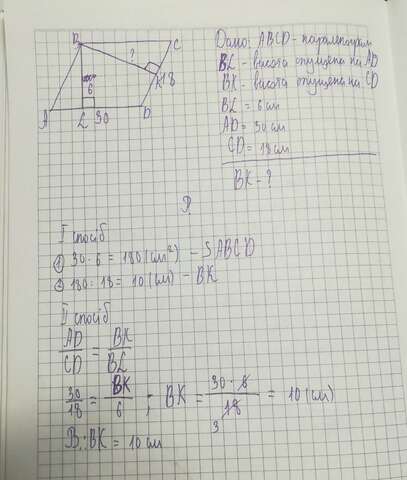 B
C
?
K
18
6
A
L
30
D
Дано: ABCD - паралелограм
BL - висота опущена на AD
BK - висота опущена на CD
BL = 6 см
AD = 30 см
CD = 18 см
BK - ?
Р.
I спосіб
1) 30 · 6 = 180 (см²) - S ABCD
2) 180 : 18 = 10 (см) - BK
II спосіб
AD/CD = BK/BL
30/18 = BK/6 ; BK = 30 · 6/18 = 10 (см)
3
В: BK = 10 см